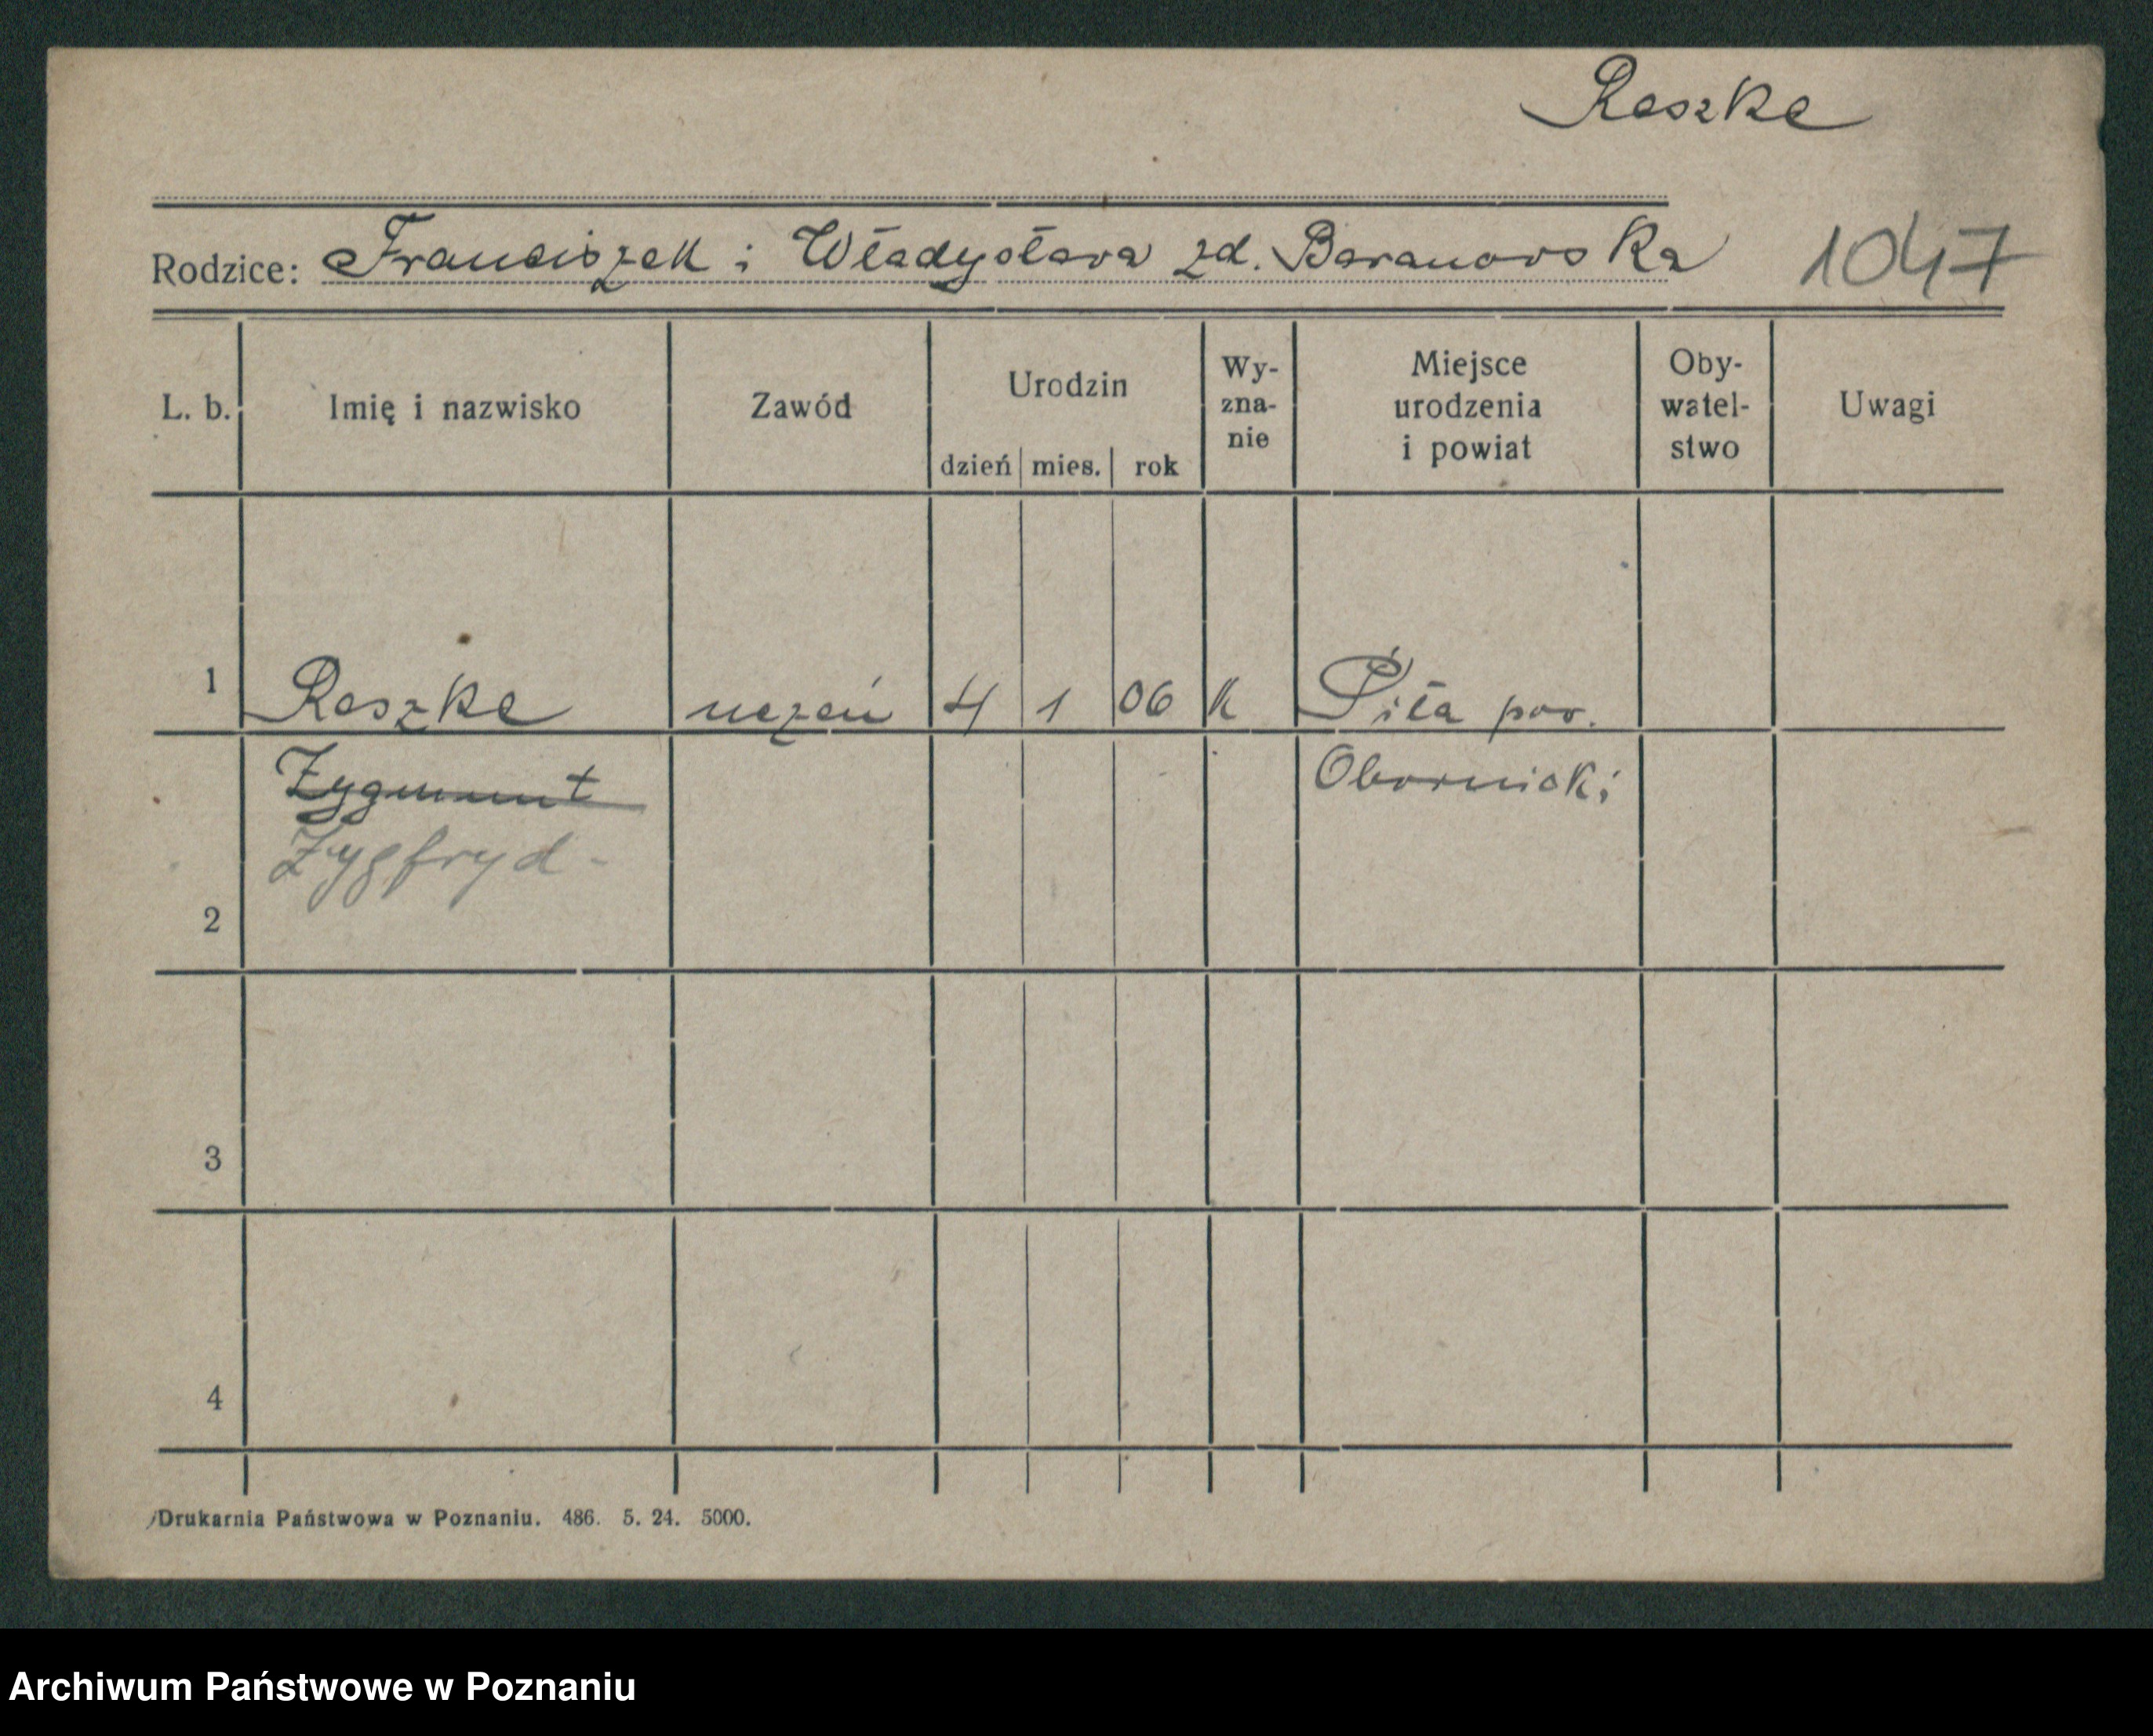 Reszke
Rodzice: Franciszek i Władysława zd. Baranowska 1047
L. b. Imię i nazwisko Zawód Urodzin dzień mies. rok Wy-zna-nie Miejsce urodzenia i powiat Oby-watel-stwo Uwagi
1 Reszke uczeń 4 1 06 K Piła pow.
Zygmunt Obornicki
Zygfryd -
2
3
4
Drukarnia Państwowa w Poznaniu. 486. 5. 24. 5000.
Archiwum Państwowe w Poznaniu